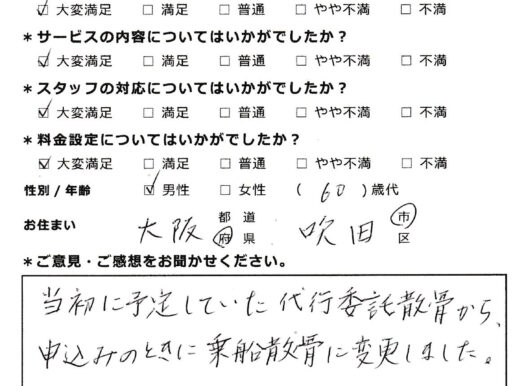 ☑ 大変満足 □ 満足 □ 普通 □ やや不満 □ 不満
＊サービスの内容についてはいかがでしたか？
☑ 大変満足 □ 満足 □ 普通 □ やや不満 □ 不満
＊スタッフの対応についてはいかがでしたか？
☑ 大変満足 □ 満足 □ 普通 □ やや不満 □ 不満
＊料金設定についてはいかがでしたか？
☑ 大変満足 □ 満足 □ 普通 □ やや不満 □ 不満
性別/年齢 ☑ 男性 □ 女性 ( 60 )歳代
お住まい 大阪 都道府県 吹田 市区
＊ご意見・ご感想をお聞かせください。
当初に予定していた代行委託散骨から、
申込みのときに乗船散骨に変更しました。